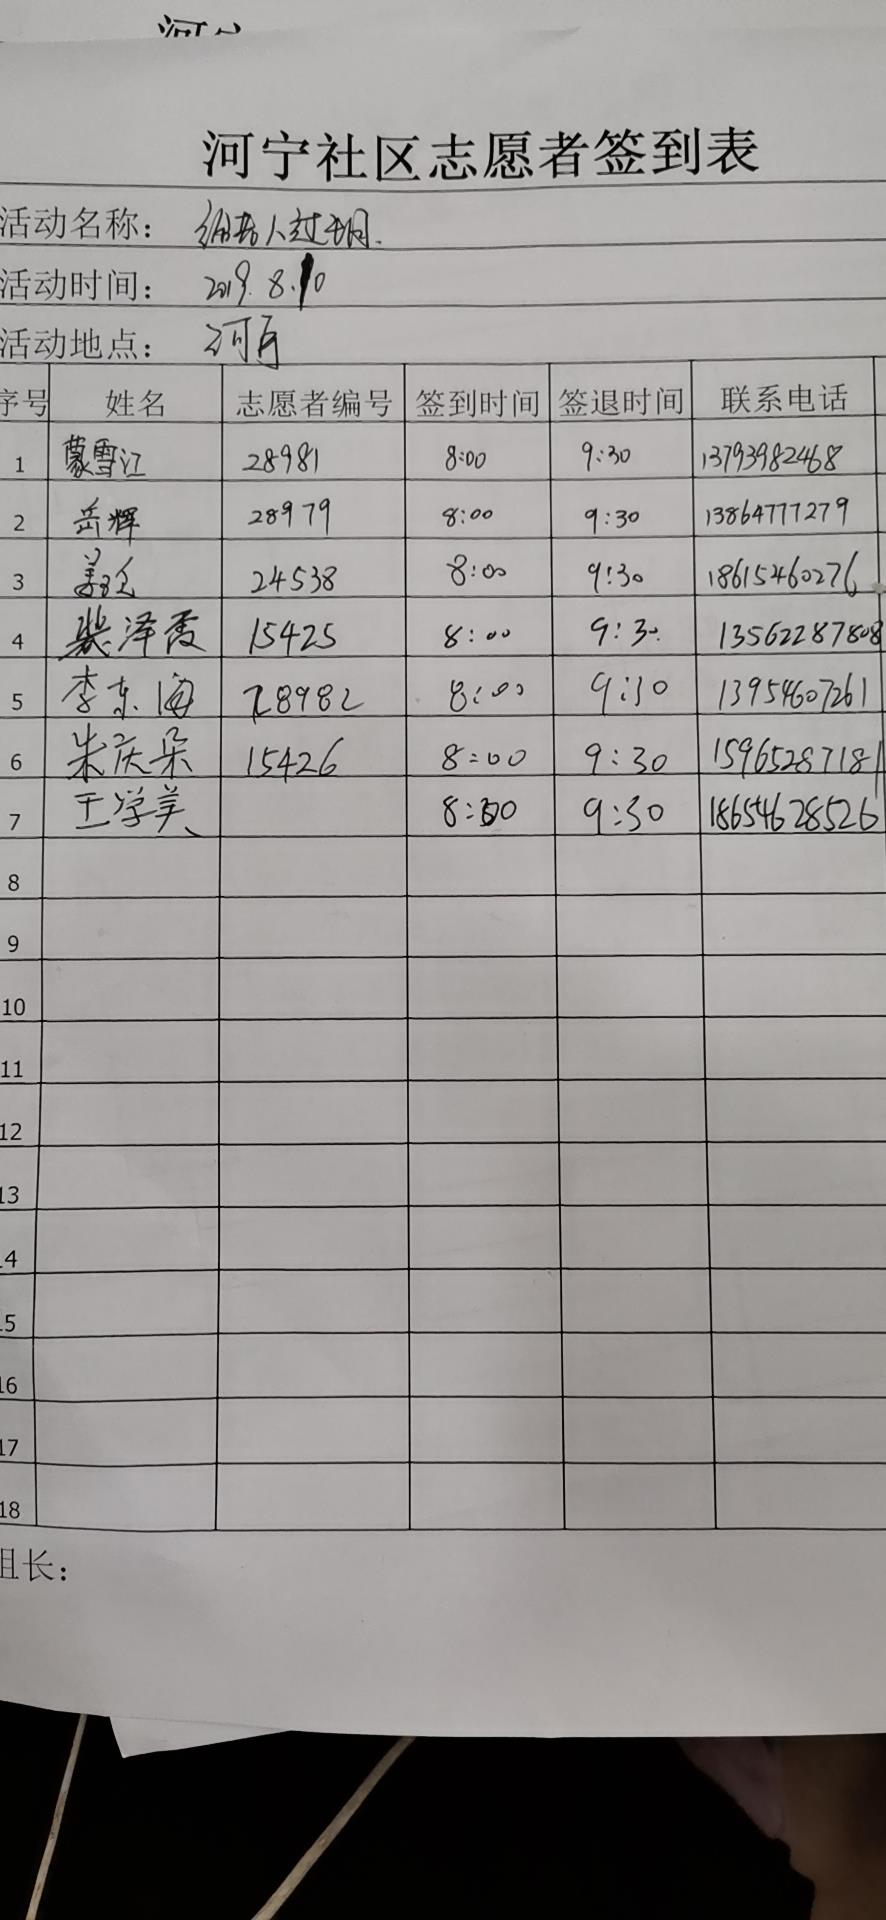 河宁社区志愿者签到表
活动名称: 给老人过生日.
活动时间: 2019.8.10
活动地点: 河宁
序号 姓名 志愿者编号 签到时间 签退时间 联系电话
1 蒙雪江 28981 8:00 9:30 13793982468
2 岳辉 28979 8:00 9:30 13864777279
3 24538 8:00 9:30 18615460276
4 裴泽霞 15425 8:00 9:30 13562287808
5 李东海 28982 8:00 9:30 13954607261
6 朱庆朵 15426 8:00 9:30 15965287181
7 王学美 8:00 9:30 18654628526
8
9
10
11
12
13
14
15
16
17
18
组长: